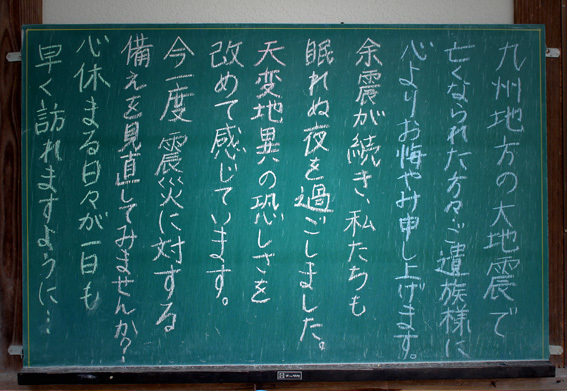 九州地方の大地震で
亡くなられた方々ご遺族様に
心よりお悔やみ申し上げます。
余震が続き、私たちも
眠れぬ夜を過ごしました。
天変地異の恐しさを
改めて感じています。
今一度震災に対する
備えを見直してみませんか?
心休まる日々が一日も
早く訪れますように…